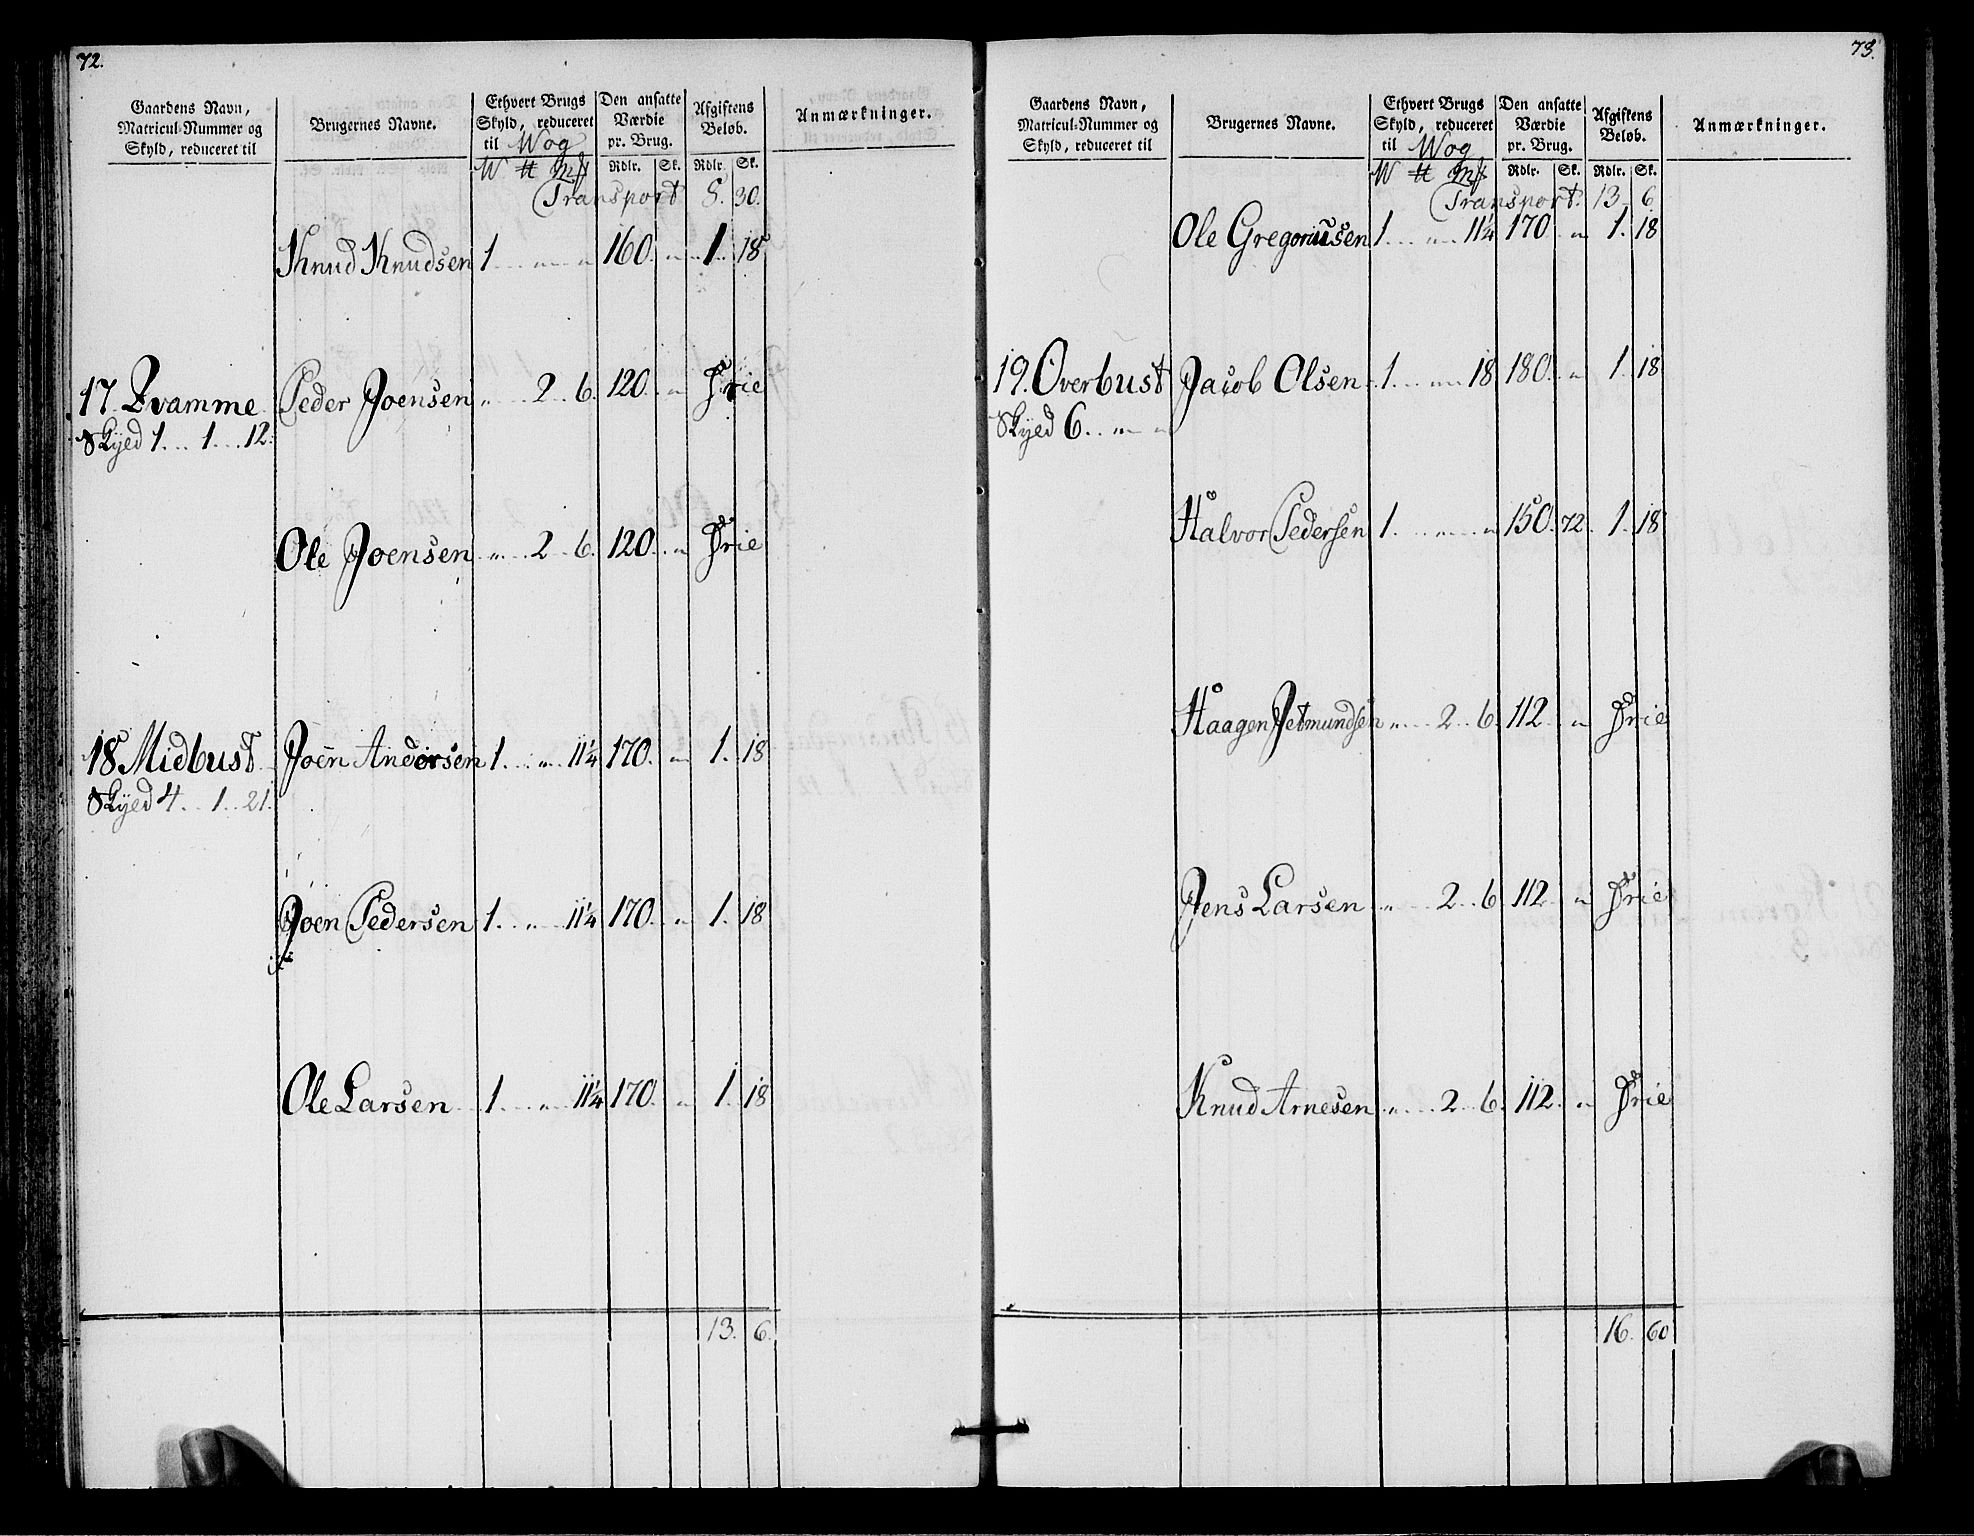 72.
Gaardens Navn, Matricul-Nummer og Skyld, reduceret til
Brugernes Navne.
Ethvert Brugs Skyld, reduceret til Wog
Den ansatte Værdie pr. Brug.
Afgiftens Beløb.
Anmærkninger.
W ℔ Mk Rdlr. Sk. Rdlr. Sk.
Transport 8. 30.
Knud Knudsen 1 .. „ .. „ 160. „ 1. 18
17. Qvamme Peder Joensen „ .. 2 .. 6. 120. „ Frie
Skyld 1 .. 1 .. 12.
Ole Joensen „ .. 2 .. 6. 120. „ Frie
18 Midbust Joen Andersen 1. .. „ .. 11¼ 170. „ 1. 18
Skyld 4 .. 1 .. 21.
Joen Pedersen 1. .. „ .. 11¼ 170. „ 1. 18
Ole Larsen 1 .. „ .. 11¼ 170. „ 1. 18
13. 6.
73.
Gaardens Navn, Matricul-Nummer og Skyld, reduceret til
Brugernes Navne.
Ethvert Brugs Skyld, reduceret til Wog
Den ansatte Værdie pr. Brug.
Afgiftens Beløb.
Anmærkninger.
W ℔ Mk Rdlr. Sk. Rdlr. Sk.
Transport. 13 6
Ole Gregoriusen 1 .. „ .. 11¼ 170 „ 1. 18
19. Overbust Jacob Olsen 1 .. „ .. 18 180. „ 1. 18
Skyld 6 .. „ .. „
Halvor Pedersen 1 .. „ .. „ 150. 72. 1. 18
Haagen Jetmundsen „ .. 2 .. 6 112. „ Frie
Jens Larsen „ .. 2 .. 6 112. „ Frie
Knud Arnesen „ .. 2 .. 6. 112. „ Frie
16. 60